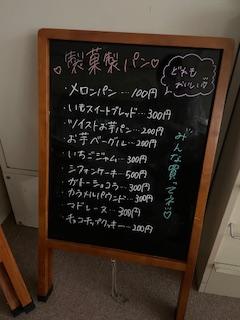 製菓製パン♡
どれも
おいしい!!
・メロンパン…100円
・いもスイートブレッド…300円
・ソイストお芋パン…200円
・お芋ベーグル…200円
・いちごジャム…300円
・シフォンケーキ…500円
・ガトーショコラ…300円
・カラメルパウンド…300円
・マドレーヌ…300円
・チョコチップクッキー…200円
みんな買ってネ!!♡